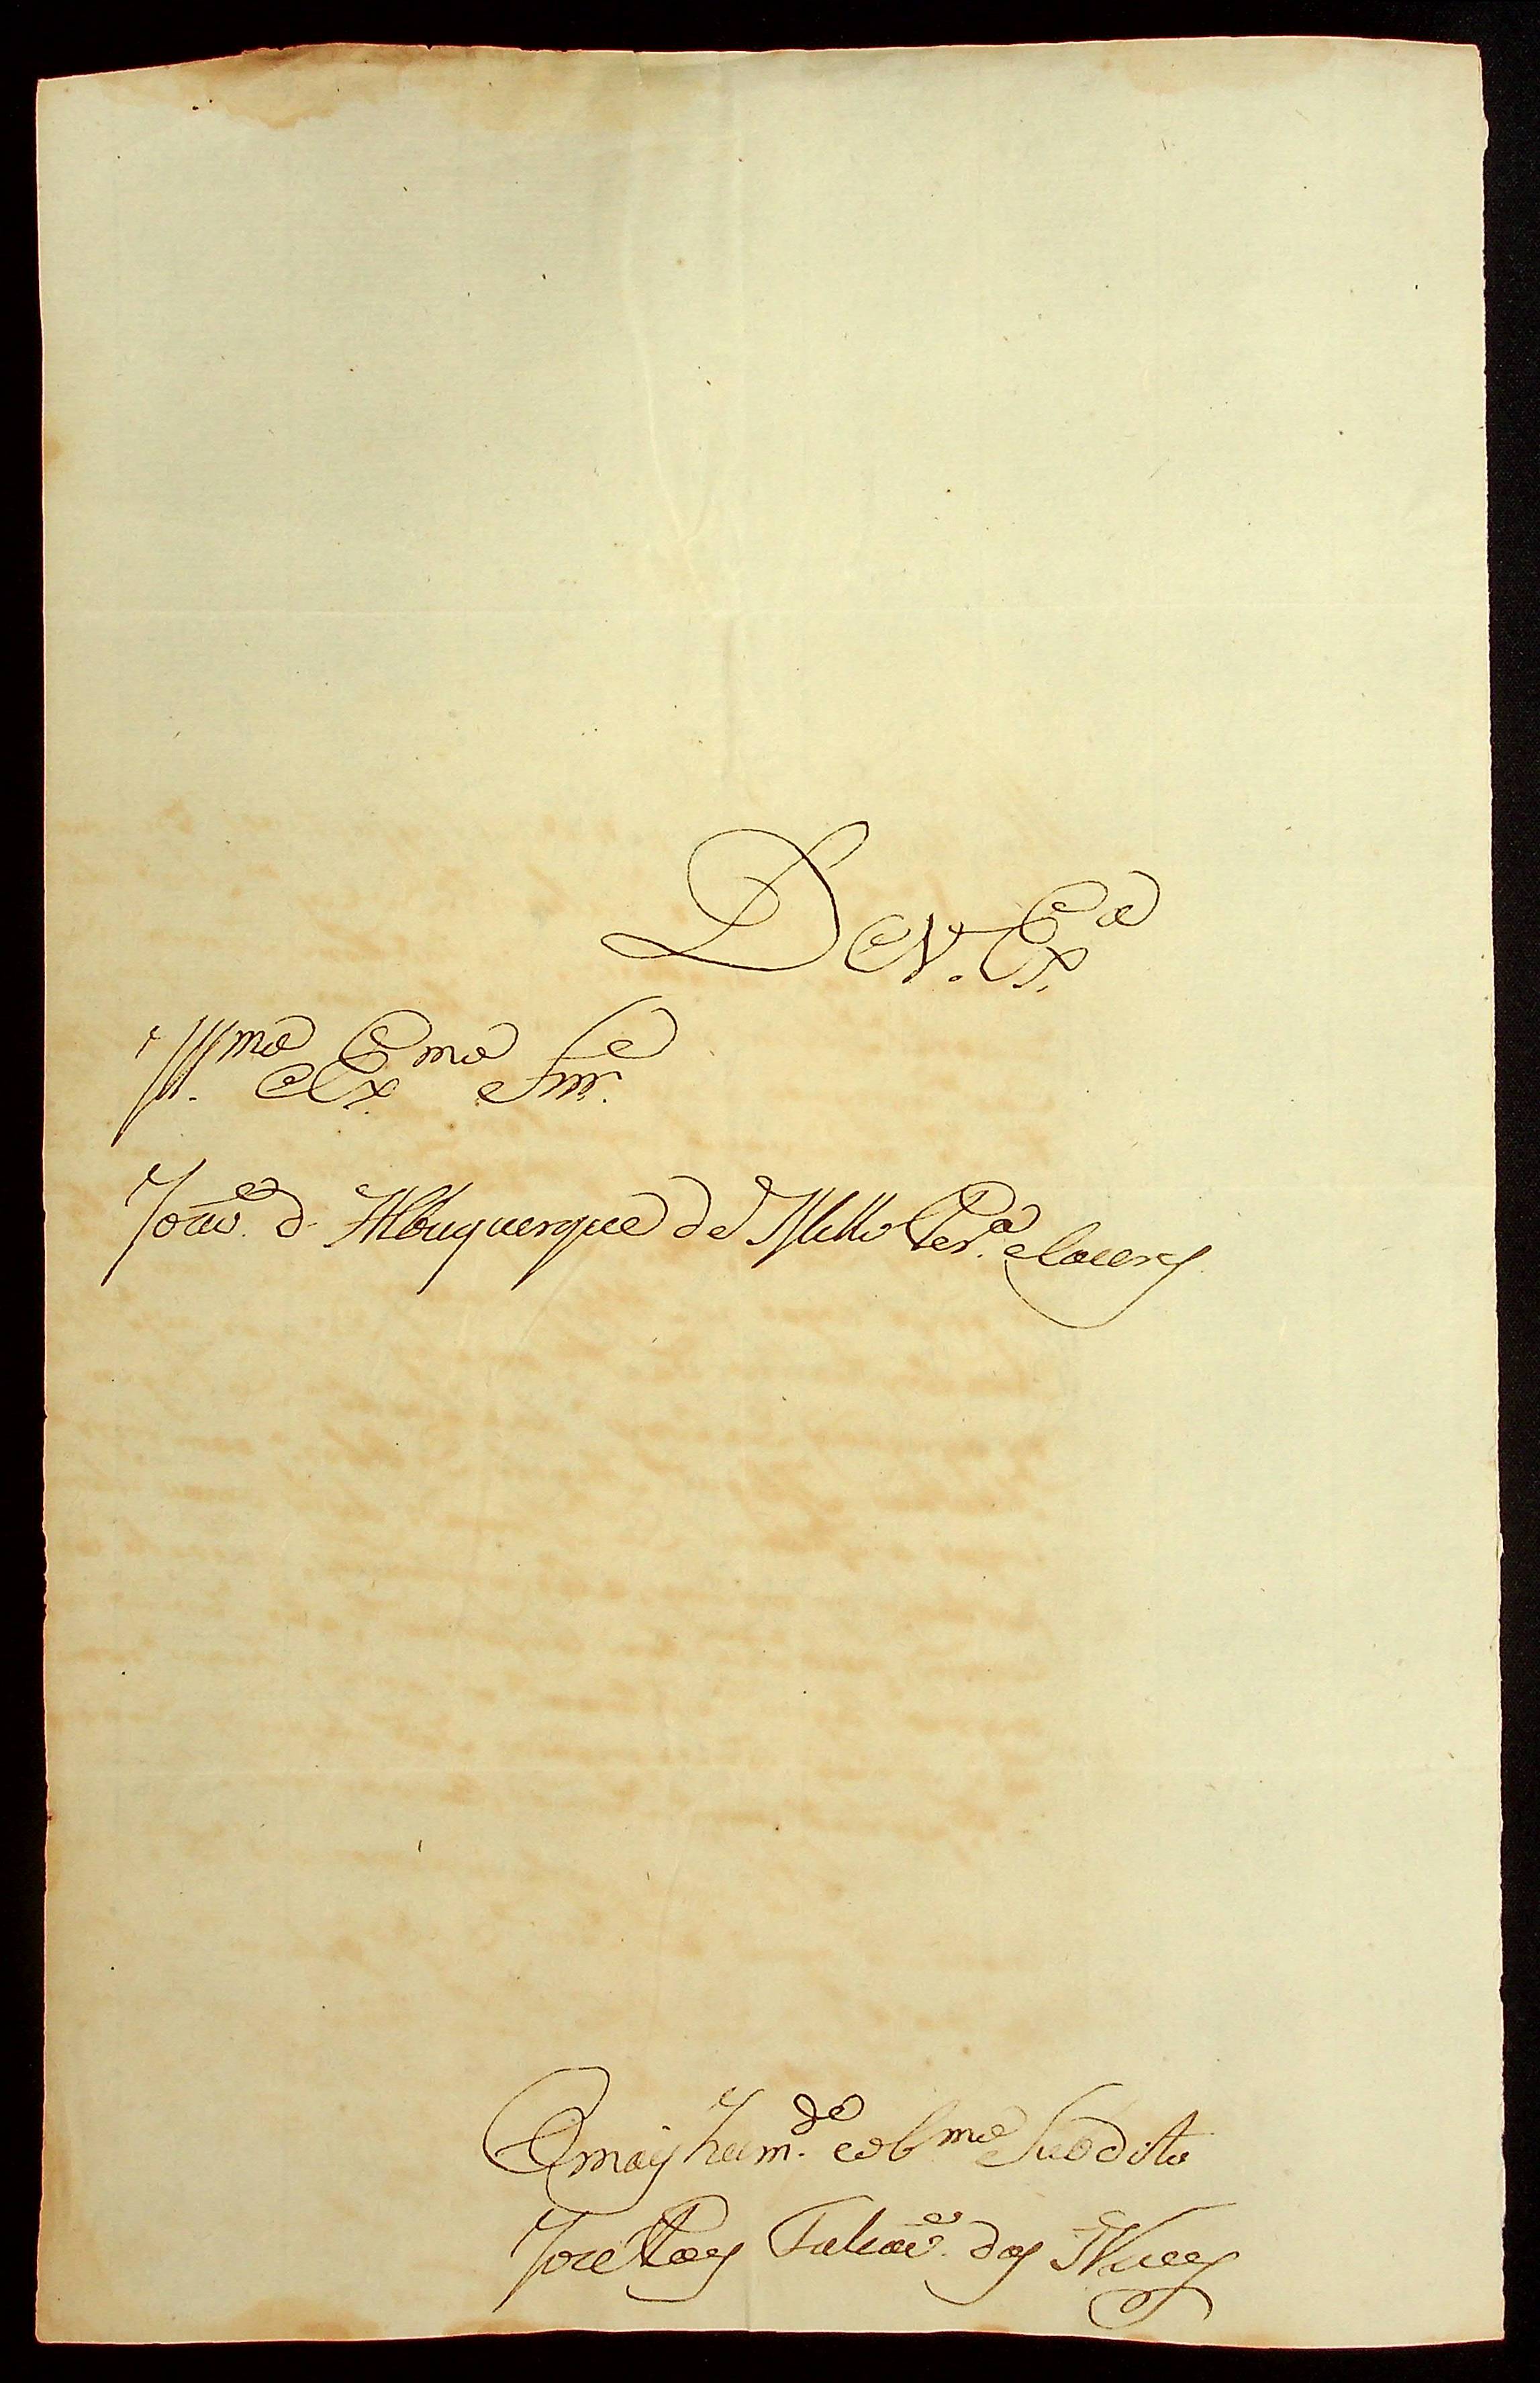 De V. Ex.ª
Ill.mo e Ex.mo Snr.
João d Albuquerque de Mello Per.ª e Cacery
O may hum.de e ob.mo Subdito
Joze Paes Falcão das Neves